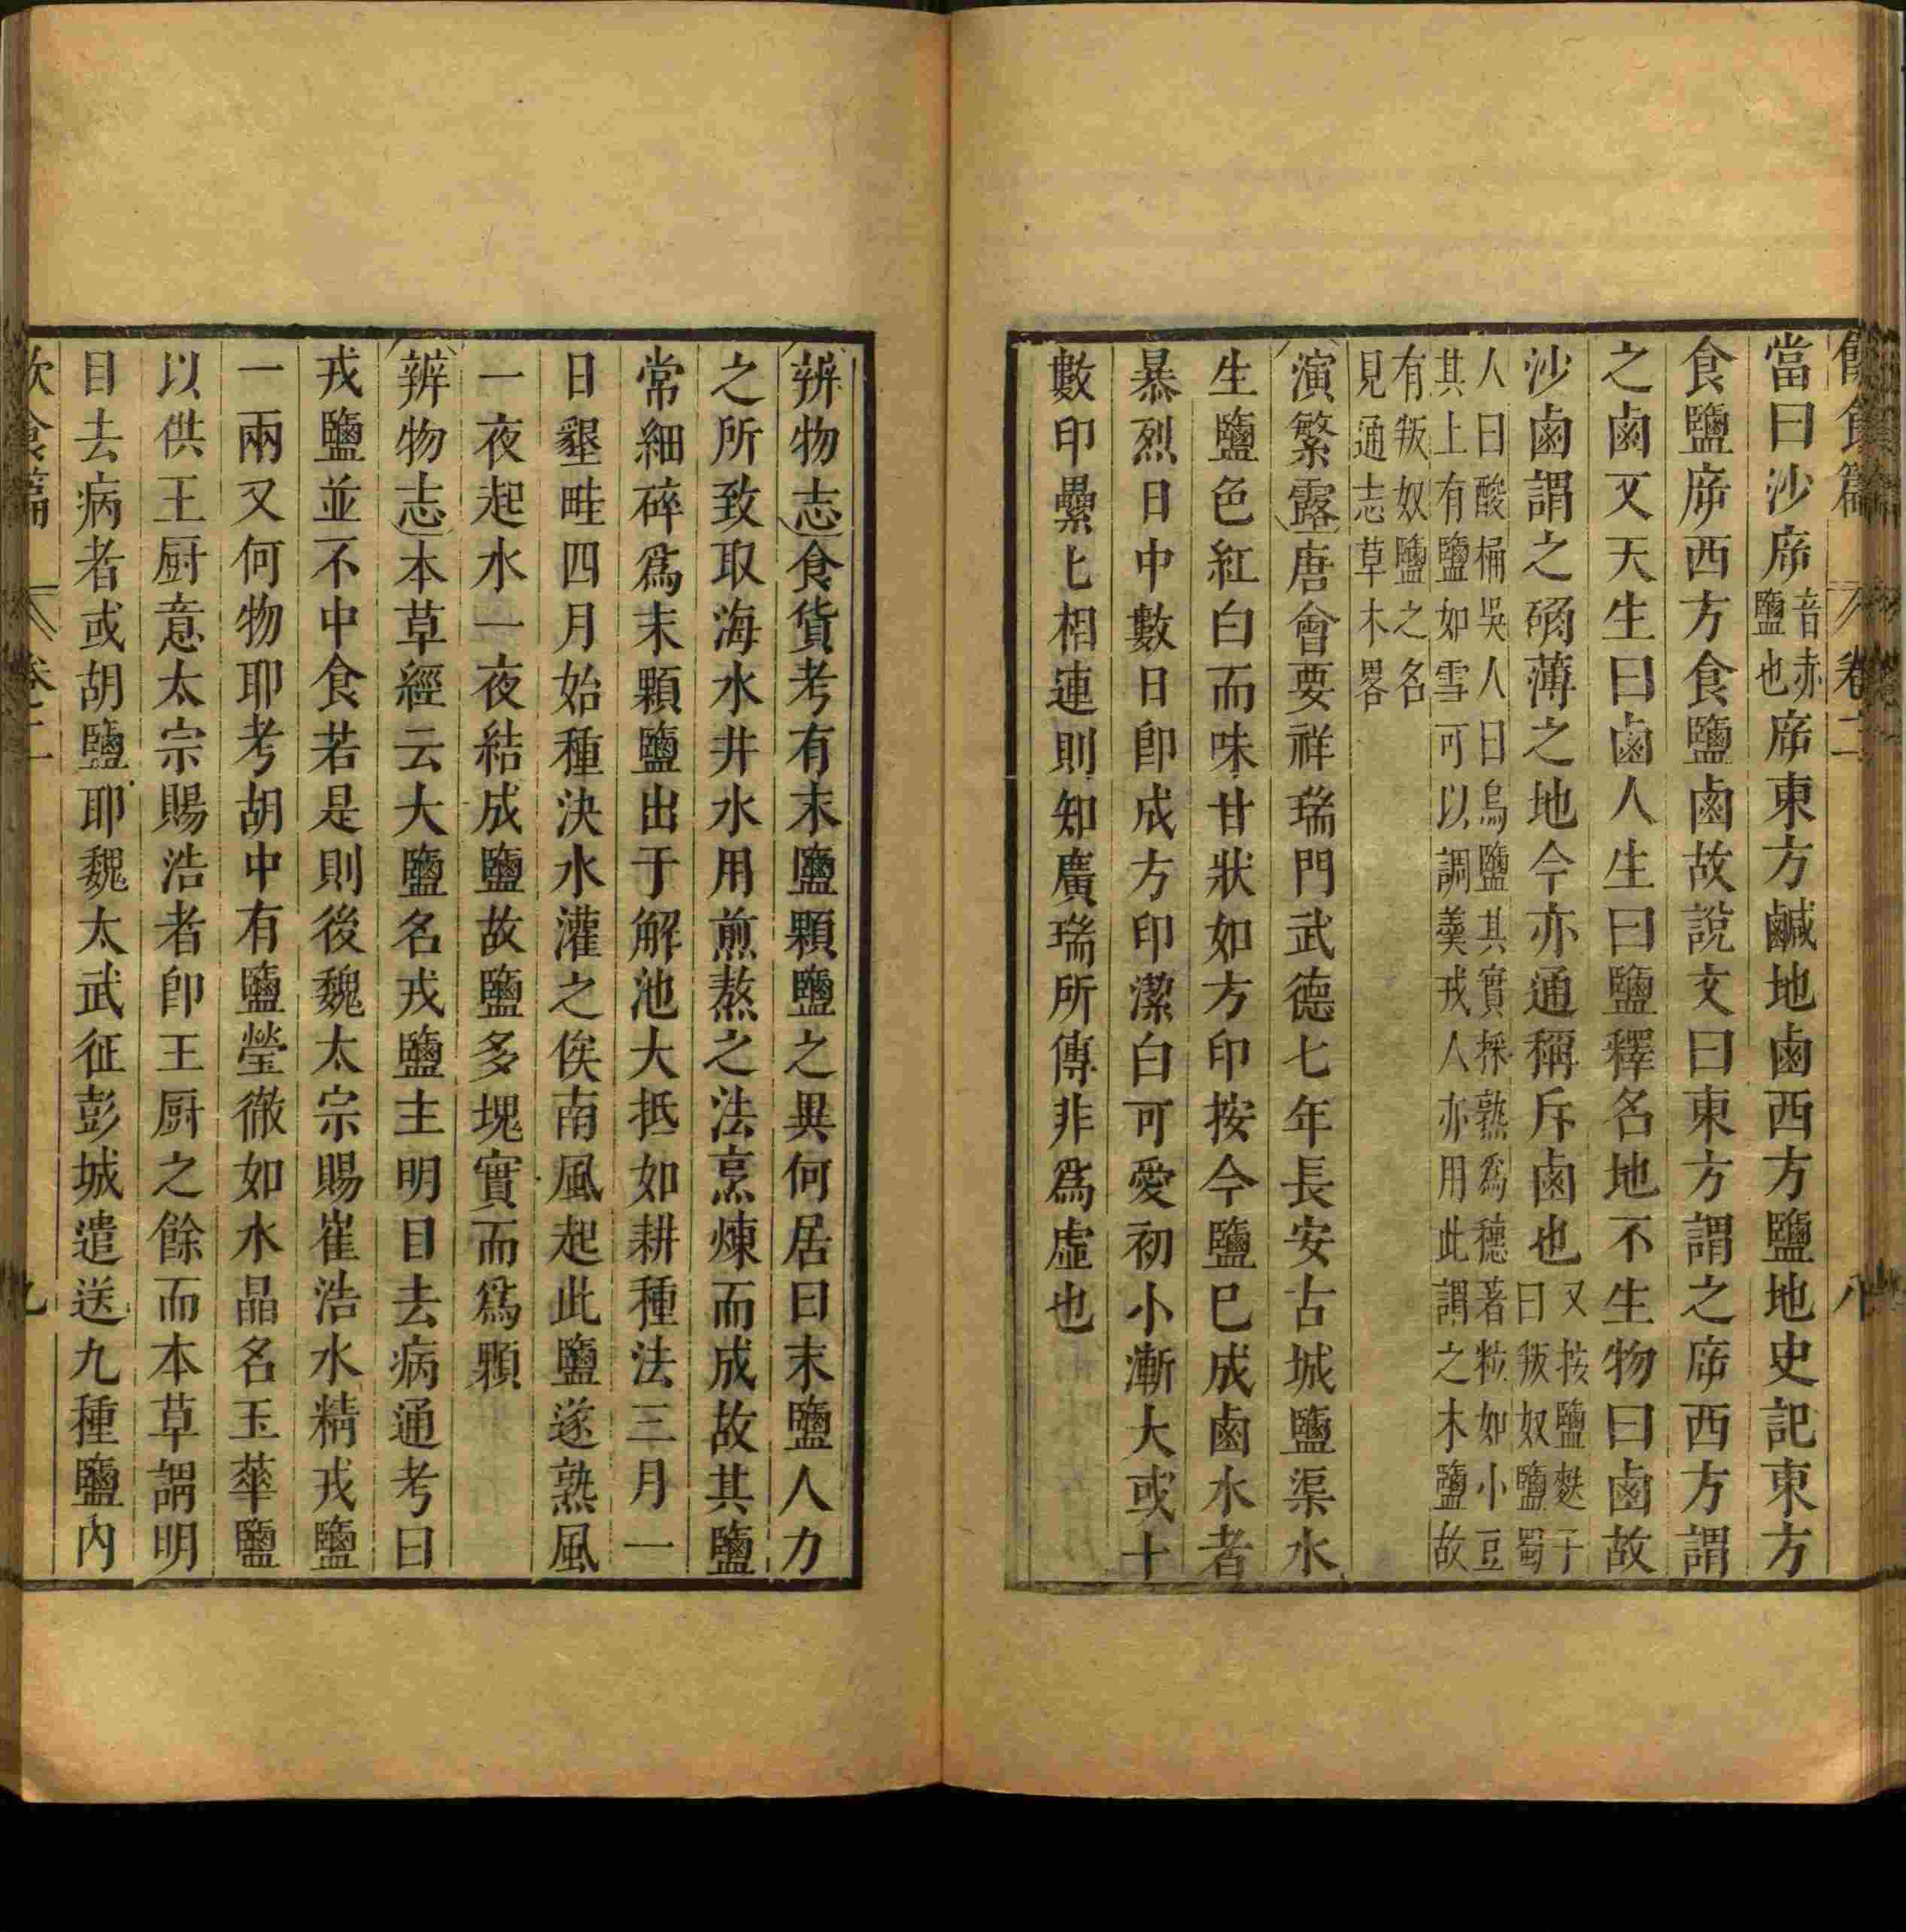 飲食篇 卷二 八
當曰沙㡿音赤鹽也㡿東方鹹地鹵西方鹽地史記東方
食鹽㡿西方食鹽鹵故說文曰東方謂之㡿西方謂
之鹵又天生曰鹵人生曰鹽釋名地不生物曰鹵故
沙鹵謂之磽薄之地今亦通稱斥鹵也又按鹽麩子蜀曰叛奴鹽
人曰酸桶吳人曰烏鹽其實採熟爲穗著粒如小豆
其上有鹽如雪可以調羹戎人亦用此謂之木鹽故
有叛奴鹽之名
見通志草木畧
演繁露唐會要祥瑞門武德七年長安古城鹽渠水
生鹽色紅白而味甘狀如方印按今鹽已成鹵水者
暴烈日中數日卽成方印潔白可愛初小漸大或十
數印纍匕相連則知廣瑞所傳非爲虛也
辨物志食貨考有末鹽顆鹽之異何居曰末鹽人力
之所致取海水井水用煎熬之法烹煉而成故其鹽
常細碎爲末顆鹽出于解池大抵如耕種法三月一
日墾畦四月始種決水灌之俟南風起此鹽遂熟風
一夜起水一夜結成鹽故鹽多塊實而爲顆
辨物志本草經云大鹽名戎鹽主明目去病通考曰
戎鹽並不中食若是則後魏太宗賜崔浩水精戎鹽
一兩又何物耶考胡中有鹽瑩徹如水晶名玉華鹽
以供王厨意太宗賜浩者卽王厨之餘而本草謂明
目去病者或胡鹽耶魏太武征彭城遣送九種鹽内
飲食篇 卷二 九